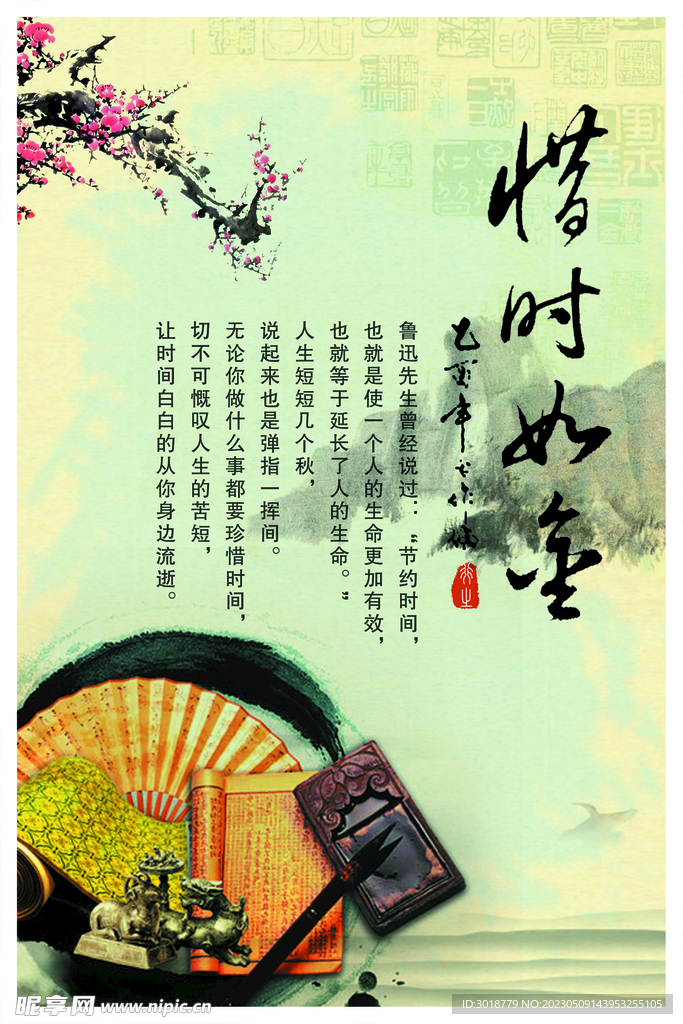 惜时如金
乙酉年
鲁迅先生曾经说过：“节约时间，
也就是使一个人的生命更加有效，
也就等于延长了人的生命。”
人生短短几个秋，
说起来也是弹指一挥间。
无论你做什么事都要珍惜时间，
切不可慨叹人生的苦短，
让时间白白的从你身边流逝。
昵享网 www.nipic.cn
ID:3018779 NO:20230509143953255105